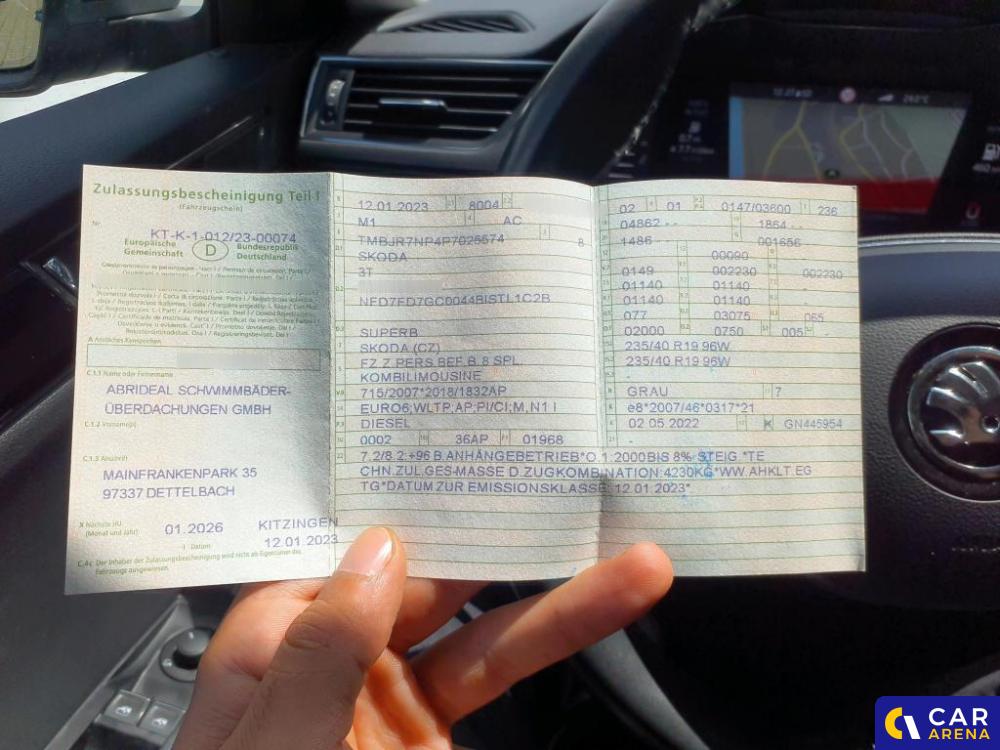 Zulassungsbescheinigung Teil I
(Fahrzeugschein)
Nr.
KT-K-1-012/23-00074
Europäische
Gemeinschaft
D
Bundesrepublik
Deutschland
A Amtliches Kennzeichen
C.1.1 Name oder Firmenname
ABRIDEAL SCHWIMMBÄDER-
ÜBERDACHUNGEN GMBH
C.1.2 Vorname(n)
C.1.3 Anschrift
MAINFRANKENPARK 35
97337 DETTELBACH
X Nächste HU
(Monat und Jahr)
01.2026
KITZINGEN
I Datum
12.01.2023
C.4c Der Inhaber der Zulassungsbescheinigung wird nicht als Eigentümer des
Fahrzeugs ausgewiesen.
12.01.2023 8004
M1 AC
TMBJR7NP4P7025574 8
SKODA
3T
NFD7FD7GC0044BISTL1C2B
SUPERB
SKODA (CZ)
FZ.Z.PERS.BEF.B. 8 SPL.
KOMBILIMOUSINE
715/2007*2018/1832AP
EURO6;WLTP;AP;PI/CI;M,N1 I
DIESEL
0002 36AP 01968
02 01 0147/03600 236
04862 - 1864 - -
1486 - 001656
00090 - -
0149 002230 002230
01140 01140 -
01140 01140 -
077 03075 065
02000 0750 005
235/40 R19 96W
235/40 R19 96W
-
GRAU 7
e8*2007/46*0317*21
02.05.2022 K GN445954
7.2/8.2:+96 B.ANHÄNGEBETRIEB*O.1:2000BIS 8% STEIG.*TE
CHN.ZUL.GES-MASSE D.ZUGKOMBINATION:4230KG*WW.AHKLT.EG
TG*DATUM ZUR EMISSIONSKLASSE: 12.01.2023*
CAR
ARENA